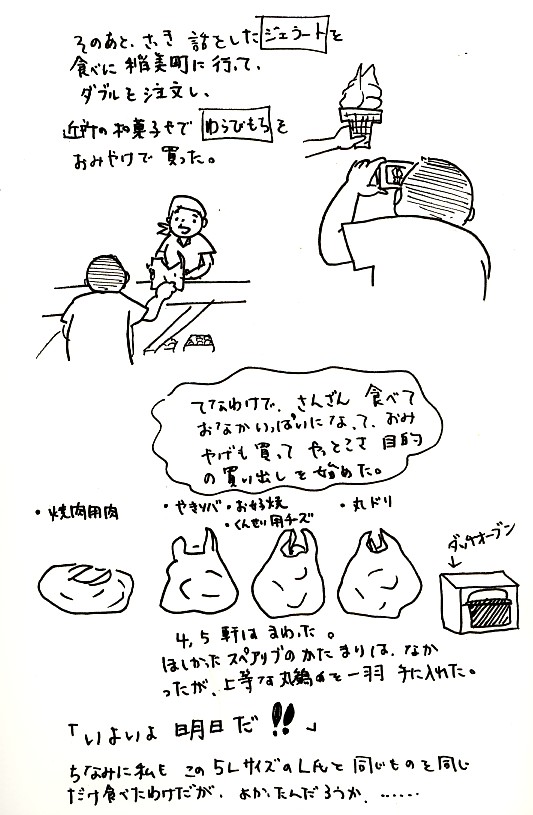 そのあと、さっき 話をした ジェラート を
食べに 稲美町に 行って、
ダブルを 注文し、
近所の 和菓子やで わらびもち を
おみやげで 買った。
てなわけで、さんざん 食べて
おなかいっぱいになって、おみ
やげも 買って やっとこさ 目的
の 買い出しを 始めた。
・焼肉用肉
・やきソバ・お好焼
・くんせい用チーズ
・丸ドリ
ダッチオーブン
4,5 軒は まわった。
ほしかった スペアリブの かたまりは、なか
ったが、上等な 丸鶏を 一羽 手に入れた。
「いよいよ 明日だ!!」
ちなみに 私も この 5Lサイズの 人と 同じものを 同じ
だけ食べたわけだが、よかったんだろうか、......